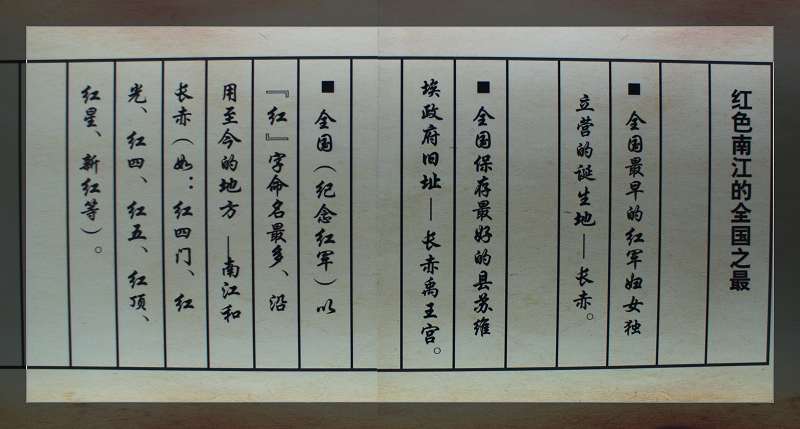 红色南江的全国之最
■全国最早的红军妇女独
立营的诞生地——长赤。
■全国保存最好的县苏维
埃政府旧址——长赤禹王宫。
■全国（纪念红军）以
『红』字命名最多、沿
用至今的地方——南江和
长赤（如：红四门、红
光、红四、红五、红顶、
红星、新红等）。